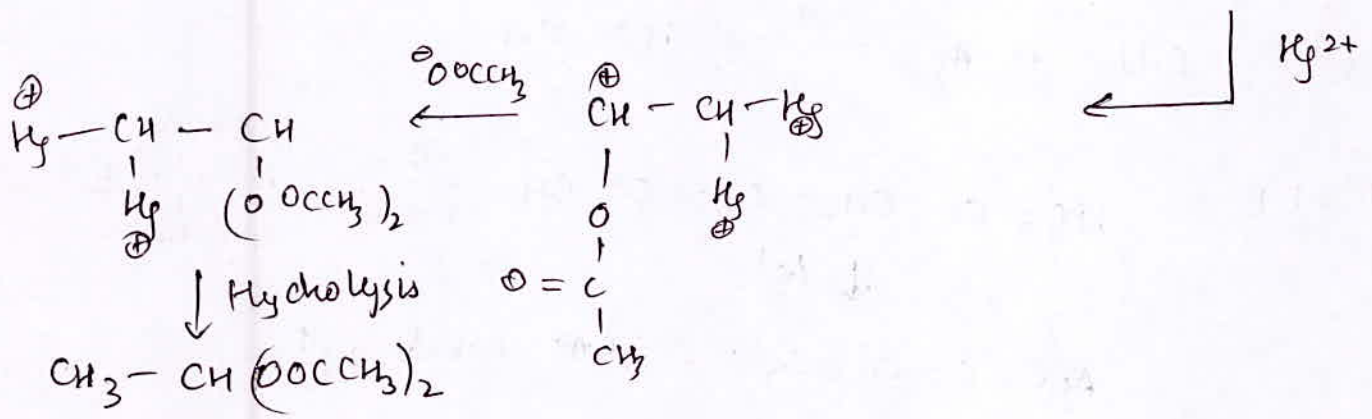 Hg2+
⊖OOCCH3
⊕ ⊕
Hg — CH — CH ← CH — CH — Hg⊕
| | | |
Hg (OOCCH3)2 O Hg
⊕ | ⊕
↓ Hydrolysis O = C
|
CH3 — CH(OOCCH3)2 CH3